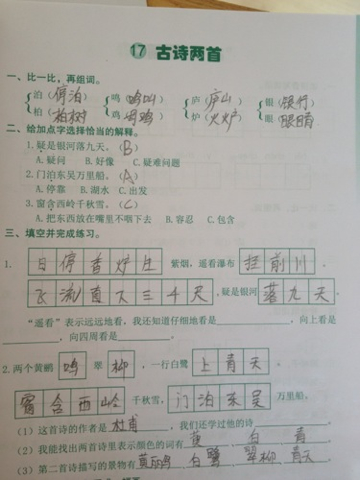 17 古诗两首
一、比一比，再组词。
泊（停泊） 鸣（鸣叫） 庐（庐山） 银（银行）
柏（柏树） 鸡（母鸡） 炉（火炉） 眼（眼睛）
二、给加点字选择恰当的解释。
1.疑是银河落九天。（B）
A.疑问 B.好像 C.疑难问题
2.门泊东吴万里船。（A）
A.停靠 B.湖水 C.出发
3.窗含西岭千秋雪。（C）
A.把东西放在嘴里不咽下去 B.容忍 C.包含
三、填空并完成练习。
1. 日 香炉 紫烟，遥看瀑布 挂前川。
飞流直下三千尺，疑是银河 落九天。
“遥看”表示远远地看，我还知道仔细地看是____，向上看是____，向四周看是____。
2.两个黄鹂 鸣 翠 柳，一行白鹭 上青天。
窗含西岭 千秋雪，门泊东吴 万里船。
（1）这首诗的作者是 杜甫，我们还学过他的诗
（2）我能找出两首诗里表示颜色的词有 黄 白 青
（3）第二首诗描写的景物有 黄鹂 白鹭 翠柳 青天